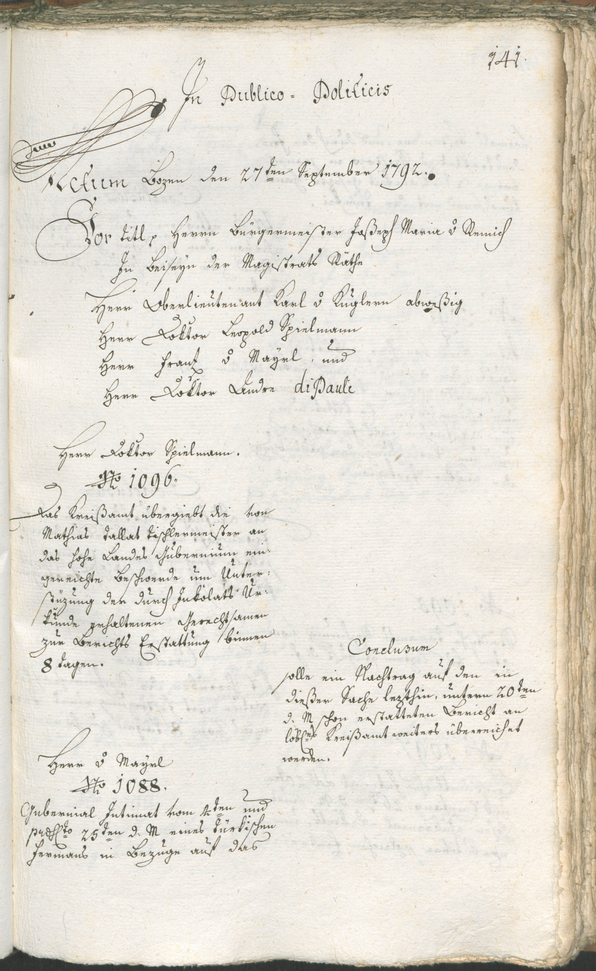 141.
In Publico-Politicis
Actum Bozen den 27ten September 1792.
Vor titl. Herrn Bürgermeister Joseph Maria v Remich
In Beiseyn der Magistrats Räthe
Herr Oberlieutenant Karl v Kuglern abweßig
Herr Doktor Leopold Spielmann
Herr Franz v Mayrl, und
Herr Doktor Andre diPauli
Herr Doktor Spielmann.
No 1096.
Das Kreisamt übergiebt die von
Mathias Tallat Tischlermeister an
das hohe Landes Gubernium ein-
gereichte Beschwerde um Unter-
stüzung der durch Inkolats Ur-
kunde erhaltenen Gerechtsamen
zur Berichts Erstattung binnen
8 tagen.
Conclusum
solle ein Nachtrag auf den in
dießer Sache lezthin, untern 20ten
d. M. schon erstatteten Bericht an
löbles Kreisamt weiters überreichet
werden.
Herr v Mayrl
No 1088.
Gubernial Intimat vom ten und
25ten d. M eines türkischen
Fermans in Bezuge auf das